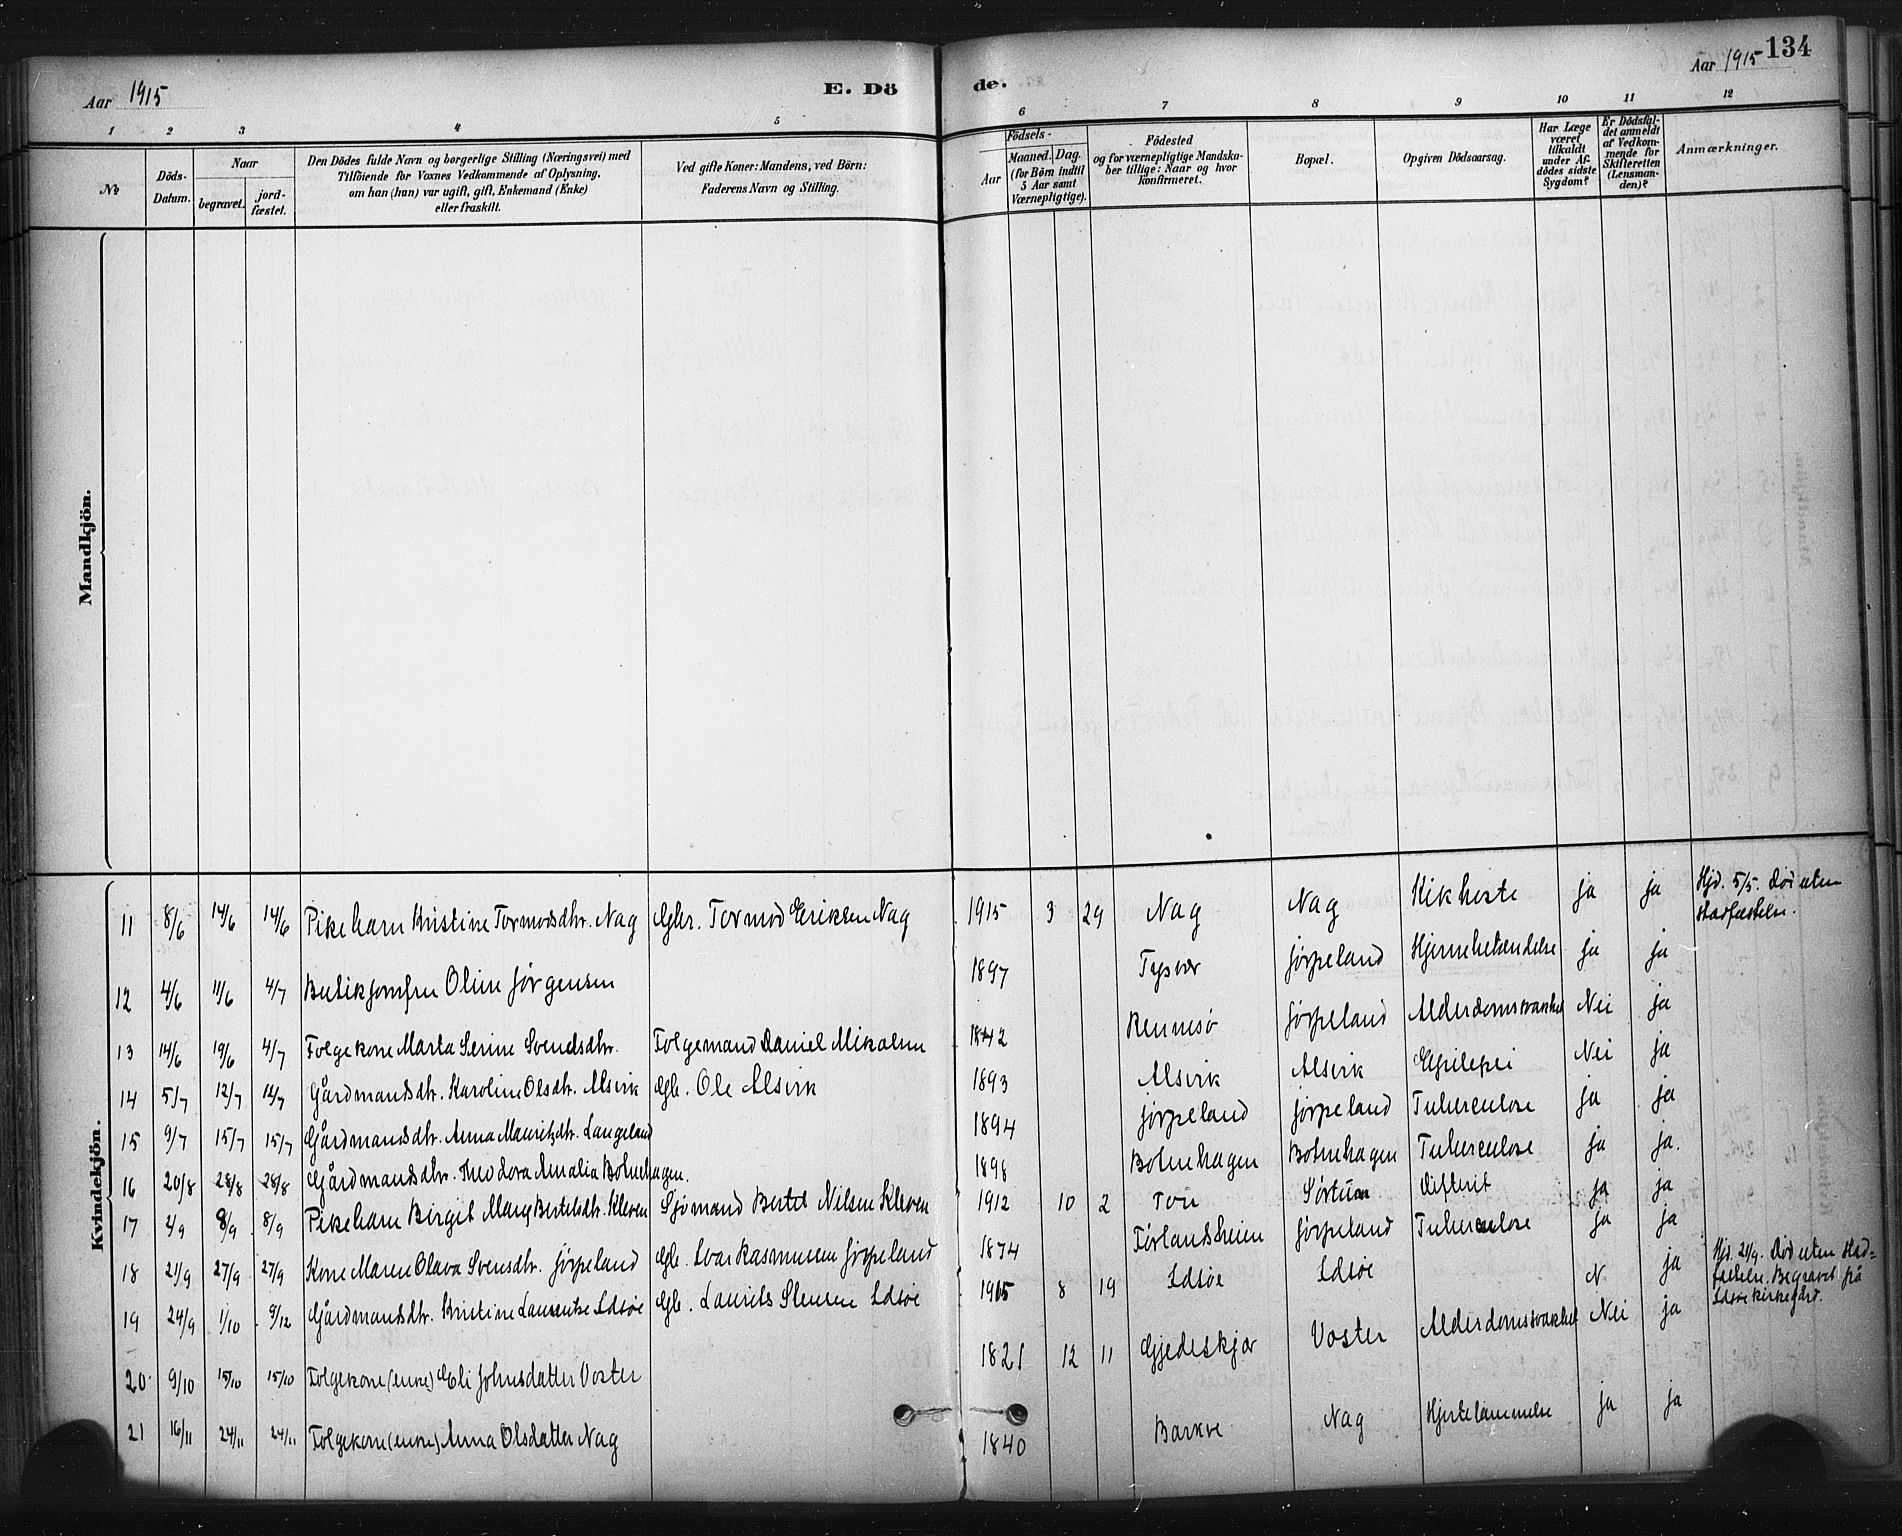 Aar 1915
E. Dö
de.
Aar 1915
134
1 2 3 4 5 6 7 8 9 10 11 12
No
Döds-Datum.
Naar
begravet.
jord-fæstet.
Den Dödes fulde Navn og borgerlige Stilling (Næringsvei) med
Tilföiende for Voxnes Vedkommende af Oplysning,
om han (hun) var ugift, gift, Enkemand (Enke)
eller fraskilt.
Ved gifte Koner: Mandens, ved Börn:
Faderens Navn og Stilling.
Födsels-
Aar
Maaned. Dag.
(for Börn indtil
5 Aar samt
Værnepligtige).
Födested
og for værnepligtige Mandska-
ber tillige: Naar og hvor
konfirmeret.
Bopæl.
Opgiven Dödsaarsag.
Har Læge
været
tilkaldt
under Af-
dödes sidste
Sygdom?
Er Dödsfal-
det anmeldt
af Vedkom-
mende for
Skifteretten
(Lensman-
den)?
Anmærkninger.
Mandkjön.
Kvindekjön.
11 8/6 14/6 14/6 Pikebarn Kristine Tormodsdtr. Nag Gbr. Tormod Eriksen Nag 1915 3 29 Nag Nag Kikhoste ja ja Hjd. 5/5. Død uten stadfæstelse.
12 4/6 11/6 4/7 Butikjomfru Oline Jørgensen 1897 Tysvær Jørpeland Hjernebetændelse ja ja
13 14/6 19/6 4/7 Folgekone Marta Serine Svendsdtr. Folgemand Daniel Mikalsen 1842 Rennesø Jørpeland Alderdomssvakhet Nei ja
14 5/7 12/7 12/7 Gårdmandsdtr. Karoline Olsdtr. Alsvik Gbr. Ole Alsvik 1893 Alsvik Alsvik Epilepsi Nei ja
15 9/7 15/7 15/7 Gårdmandsdtr. Anna Mauritzdtr. Langeland 1894 Jørpeland Jørpeland Tuberculose ja ja
16 20/8 28/8 28/8 Gårdmandsdtr. Theodora Amalia Botnehagen. 1898 Botnehagen Botnehagen Tuberculose ja ja.
17 4/9 8/9 8/9 Pikebarn Birgit Mary Bertelsdtr. Kleven Sjømand Bertel Nilsen Kleven 1912 10 2 Tou Sørtun Difterit ja ja
18 21/9 27/9 27/9 Kone Maren Olava Svensdtr. Jørpeland Gbr. Ivar Rasmussen Jørpeland 1874 Førlandsheien Jørpeland Tuberculose ja ja
19 24/9 1/10 9/12 Gårdmandsdtr. Kristine Laurentze Idsøe Gbr. Laurits Stensen Idsøe 1915 8 19 Idsøe Idsøe N. ja Hjd. 21/9. Død uten stad-
fæstelse. Begravet på
Idsøe kirkegård.
20 9/10 15/10 15/10 Folgekone (enke) Eli Johnsdatter Voster 1821 12 11 Gjedeskjær Voster Alderdomssvakhet Nei ja
21 16/11 24/11 24/11 Folgekone (enke) Anna Olsdatter Nag 1840 Barkve Nag Hjertelammelse ja ja